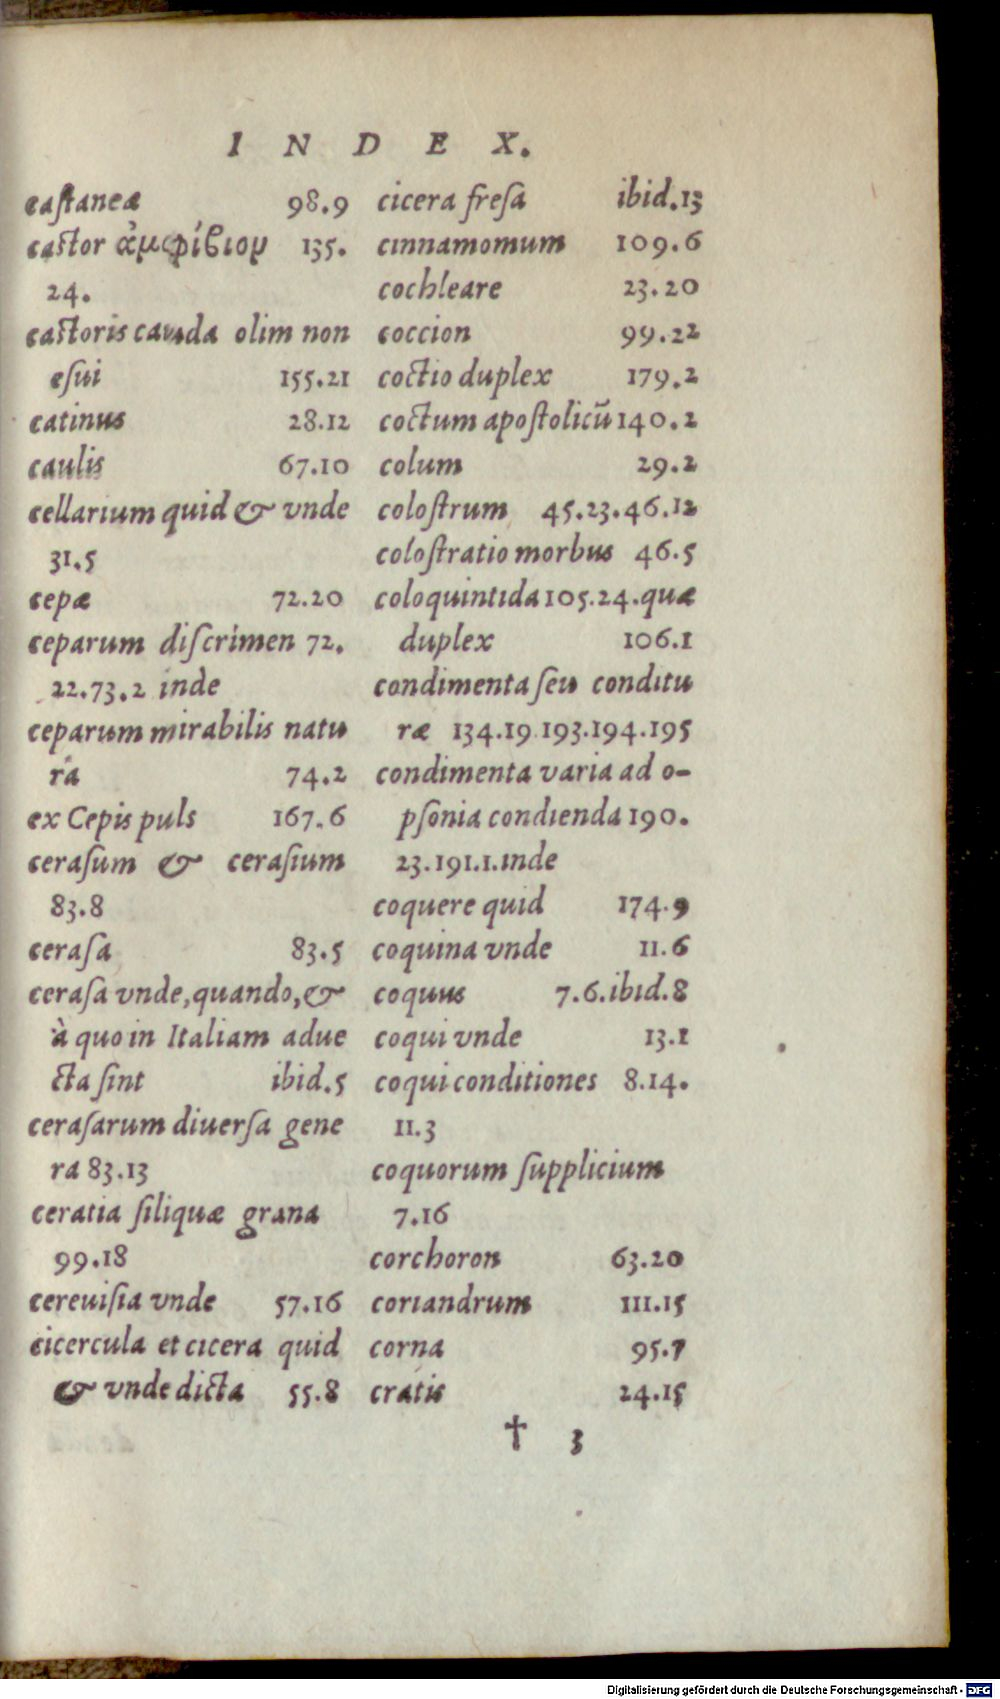 INDEX.
castaneæ 98.9
castor ἀμφίβιον 135.
24.
castoris cauda olim non
esui 155.21
catinus 28.12
caulis 67.10
cellarium quid & vnde
31.5
cepæ 72.20
ceparum discrimen 72.
22.73.2 inde
ceparum mirabilis natu
ra 74.2
ex Cepis puls 167.6
cerasum & cerasium
83.8
cerasa 83.5
cerasa vnde, quando, &
à quo in Italiam adue
cta sint ibid.5
cerasarum diuersa gene
ra 83.13
ceratia siliquæ grana
99.18
cereuisia vnde 57.16
cicercula et cicera quid
& vnde dicta 55.8
cicera fresa ibid.13
cinnamomum 109.6
cochleare 23.20
coccion 99.22
coctio duplex 179.2
coctum apostolicū 140.2
colum 29.2
colostrum 45.23.46.12
colostratio morbus 46.5
coloquintida 105.24. quæ
duplex 106.1
condimenta seu conditu
ræ 134.19 193.194.195
condimenta varia ad o-
psonia condienda 190.
23.191.1. inde
coquere quid 174.9
coquina vnde 11.6
coquus 7.6. ibid.8
coqui vnde 13.1
coqui conditiones 8.14.
11.3
coquorum supplicium
7.16
corchoron 63.20
coriandrum 111.15
corna 95.7
cratis 24.15
† 3
Digitalisierung gefördert durch die Deutsche Forschungsgemeinschaft - DFG